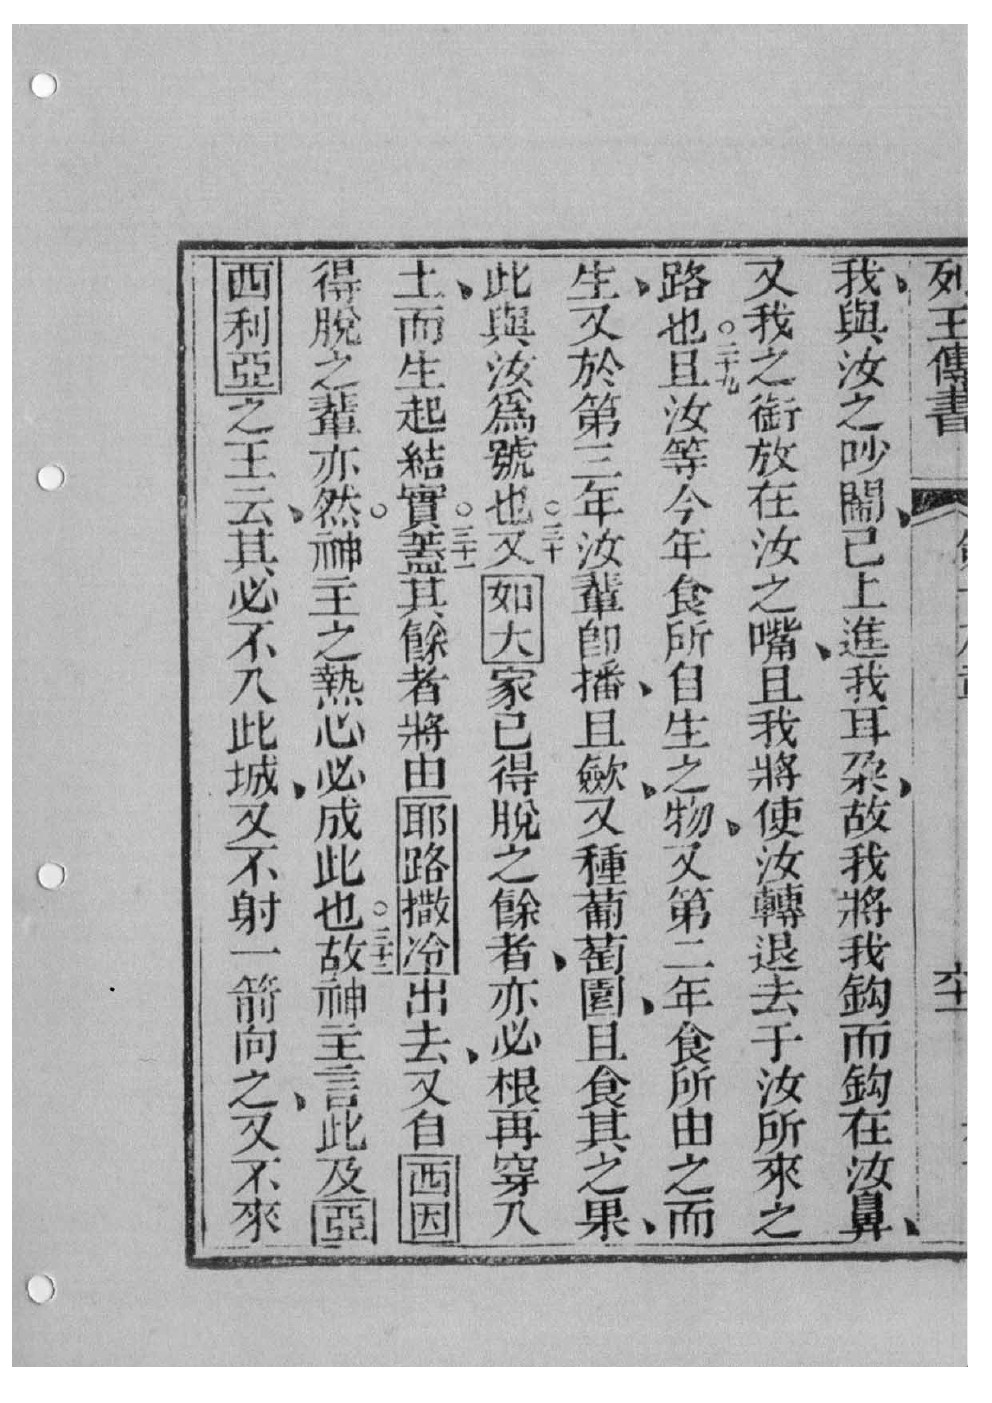 列王傳書
六十
我與汝之吵鬧、已上進我耳朶、故我將我鈎而鈎在汝鼻、
又我之銜放在汝之嘴、且我將使汝轉退去于汝所來之
路也○二十九且汝等今年食所自生之物、又第二年食所由之而
生、又於第三年汝輩卽播、且歛、又種葡萄園、且食其之果、
此與汝爲號也○三十又如大家已得脫之餘者、亦必根再穿入
土、而生起結實○三十一蓋其餘者將由耶路撒冷出去、又自西因
得脫之輩亦然○神主之熱心必成此也○三十二故神主言此及亞
西利亞之王云、其必不入此城、又不射一箭向之、又不來